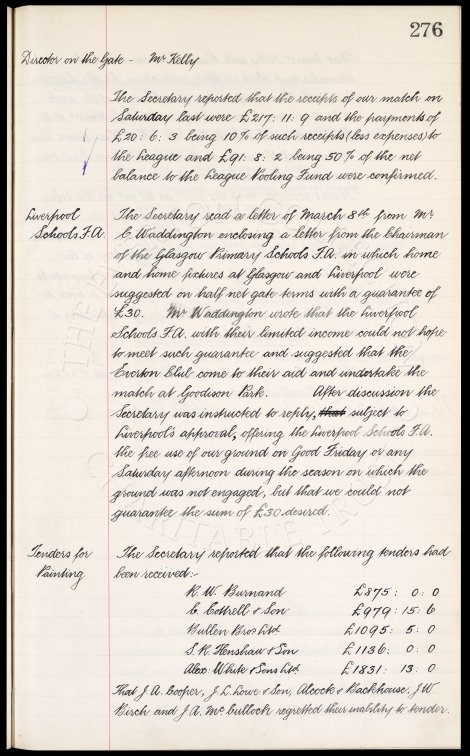 276
Director on the Gate - Mr Kelly
The Secretary reported that the receipts of our match on
Saturday last were £217: 11: 9 and the payments of
£20: 6: 3 being 10% of such receipts (less expenses) to
the League and £91: 8: 2 being 50% of the net
balance to the League Pooling Fund were confirmed.
Liverpool
Schools F.A.
The Secretary read a letter of March 8th from Mr
C. Waddington enclosing a letter from the Chairman
of the Glasgow Primary Schools F.A. in which home
and home fixtures at Glasgow and Liverpool were
suggested on half net gate terms with a guarantee of
£30. Mr Waddington wrote that the Liverpool
Schools F.A. with their limited income could not hope
to meet such guarantee and suggested that the
Everton Club come to their aid and undertake the
match at Goodison Park. After discussion the
Secretary was instructed to reply, that subject to
Liverpool's approval, offering the Liverpool Schools F.A.
the free use of our ground on Good Friday or any
Saturday afternoon during the season on which the
ground was not engaged, but that we could not
guarantee the sum of £30 desired.
Tenders for
Painting
The Secretary reported that the following tenders had
been received:-
R. W. Burnand £875: 0: 0
C. Cottrell & Son £979: 15: 6
Bullen Bros Ltd £1095: 5: 0
S. R. Henshaw & Son £1136: 0: 0
Alex: White & Sons Ltd. £1831: 13: 0
That J. A. Cooper, J. L. Lowe & Son, Alcock & Backhouse, J. W.
Birch and J. A. McCulloch regretted their inability to tender.